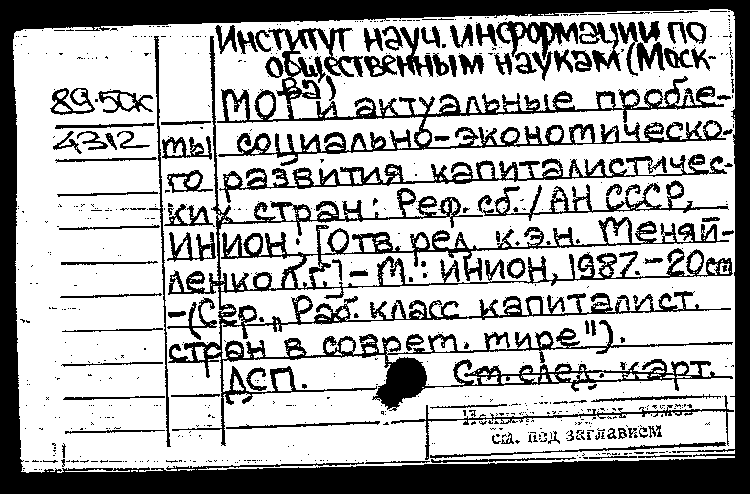 Институт науч. информации по
общественным наукам (Моск-
ва)
89.50к МОТ и актуальные пробле-
4312 мы социально-экономическо-
го развития капиталистичес-
ких стран: Реф. сб. / АН СССР,
ИНИОН; [Отв. ред. к.э.н. Меняй-
ленко Л.Г.]. - М.: ИНИОН, 1987. - 20см
- (Сер. „Раб. класс капиталист.
стран в соврем. мире").
ДСП. См. след. карт.
см. под заглавием